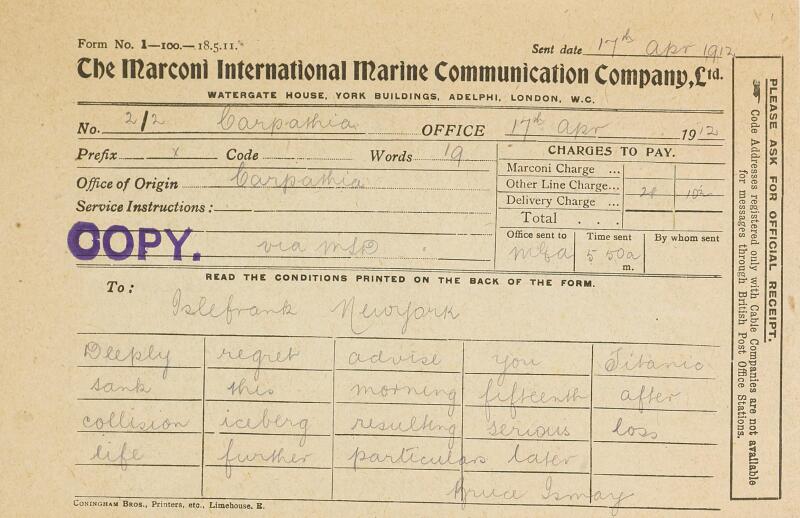 Form No. 1—100.—18.5.11.
Sent date 17th Apr 1912
The Marconi International Marine Communication Company, Ltd.
WATERGATE HOUSE, YORK BUILDINGS, ADELPHI, LONDON, W.C.
No. 2/2 Carpathia OFFICE 17th Apr 1912
Prefix x Code Words 19
CHARGES TO PAY.
Marconi Charge ...
Office of Origin Carpathia
Other Line Charge...
Service Instructions :
Delivery Charge ...
Total . . .
COPY.
via MSD
Office sent to Time sent By whom sent
MEA 5 50a
m.
READ THE CONDITIONS PRINTED ON THE BACK OF THE FORM.
To:
Islefrank Newyork
Deeply regret advise you Titanic
sank this morning fifteenth after
collision iceberg resulting serious loss
life further particulars later
Bruce Ismay
CONINGHAM BROS., Printers, etc., Limehouse, E.
PLEASE ASK FOR OFFICIAL RECEIPT.
Code Addresses registered only with Cable Companies are not available
for messages through British Post Office Stations.